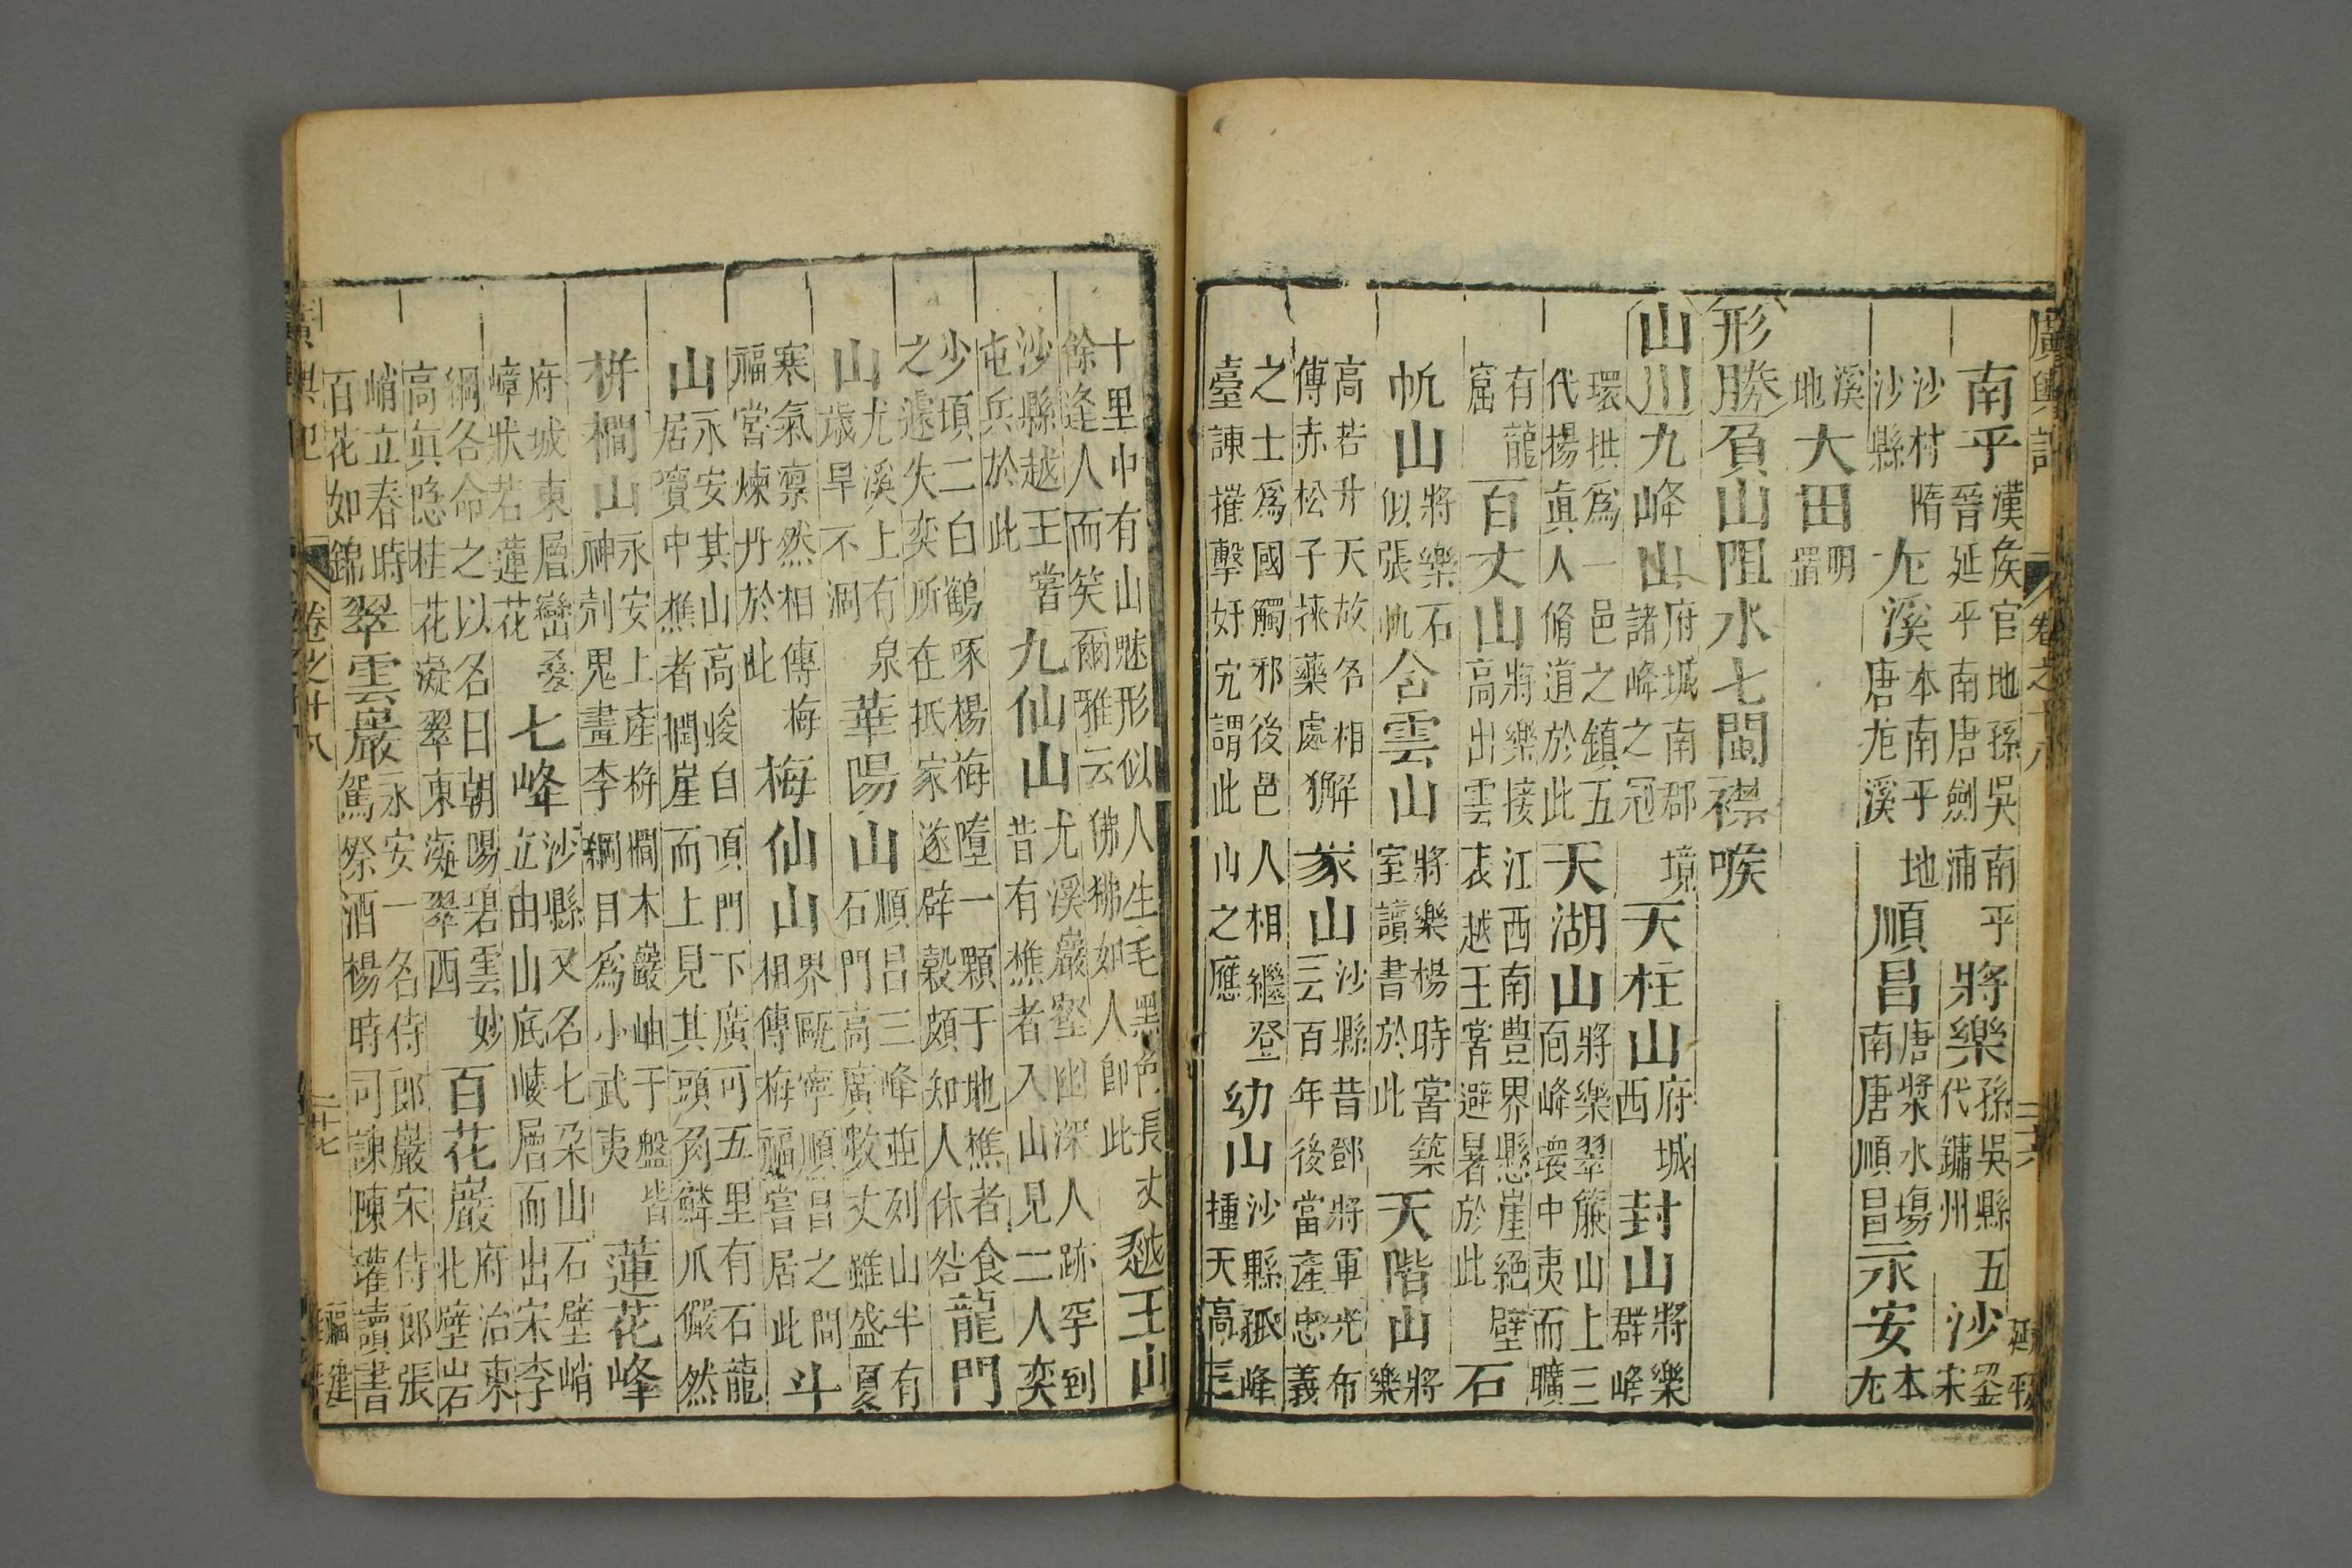 廣輿記 卷之十八 三六 延平
南平漢侯官地孫吳南平晉延平南唐劍浦將樂孫吳縣五代鏞州沙劉宋
沙村隋沙縣尤溪本南平地唐尤溪順昌唐漿水塲南唐順昌永安本尤
溪地大田明置
形勝負山阻水七閩襟喉
山川九峰山府城南郡境諸峰之冠天柱山府城西封山將樂群峰
環拱爲一邑之鎮五代楊眞人脩道於此天湖山將樂翠簾山上三面峰環中夷而曠
有龍窟百丈山將樂接江西南豊界懸崖絕壁高出雲表越王嘗避暑於此石
帆山將樂石似張帆含雲山將樂楊時嘗築室讀書於此天階山將樂
高若升天故名相傳赤松子採藥處獬豸山沙縣昔鄧將軍光布云百年後當產忠義
之士爲國觸邪後邑人相繼登臺諫摧擊奸宄謂此山之應幼山沙縣孤峰挿天高三
十里中有山魅形似人生毛黑色長丈餘逢人而笑爾雅云狒狒如人即此越王山
沙縣越王嘗屯兵於此九仙山尤溪巖壑幽深人跡罕到昔有樵者入山見二人奕
少頃二白鶴啄楊梅墮一顆于地樵者食之遽失奕所在抵家遂辟穀頗知人休咎龍門
山尤溪上有泉歲旱不涸華陽山順昌三峰並列山半有石門高廣數丈雖盛夏
寒氣凛然相傳梅福嘗煉丹於此梅仙山界甌寧順昌之間相傳梅福嘗居此斗
山永安其山高峻自頂門下廣可五里有石龍居寶中樵者捫崖而上見其頭角鱗爪儼然
栟櫚山永安上產栟櫚木巖岫于盤皆神剜鬼畫李綱目爲小武夷蓮花峰
府城東層巒疊嶂狀若蓮花七峰沙縣又名七朶山石壁峭立由山底崚層而出宋李
綱各命之以名曰朝陽碧雲妙高眞隱桂花凝翠東凝翠西百花巖府治東北壁岩
峭立春時百花如錦翠雲巖永安一名侍郎巖宋侍郎張駕祭酒楊時司諫陳瓘讀書
廣輿記 卷之十八 三七 福建